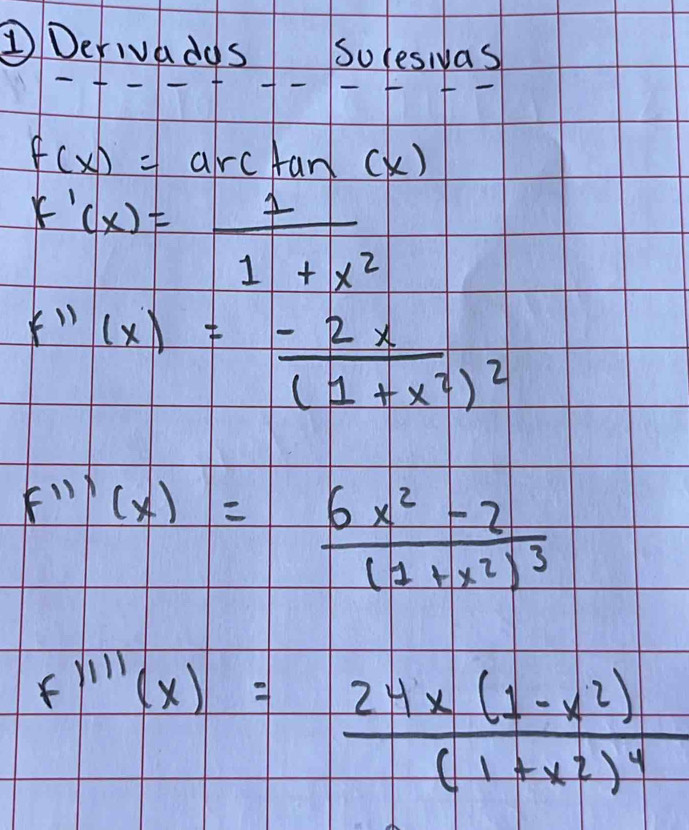 ① Derivadas Sucesivas
f(x) = arctan (x)
F'(x) = 1 / 1 + x²
F''(x) = -2x / (1 + x²)²
F'''(x) = 6x² - 2 / (1 + x²)³
F''''(x) = 24x (1 - x²) / (1 + x²)⁴